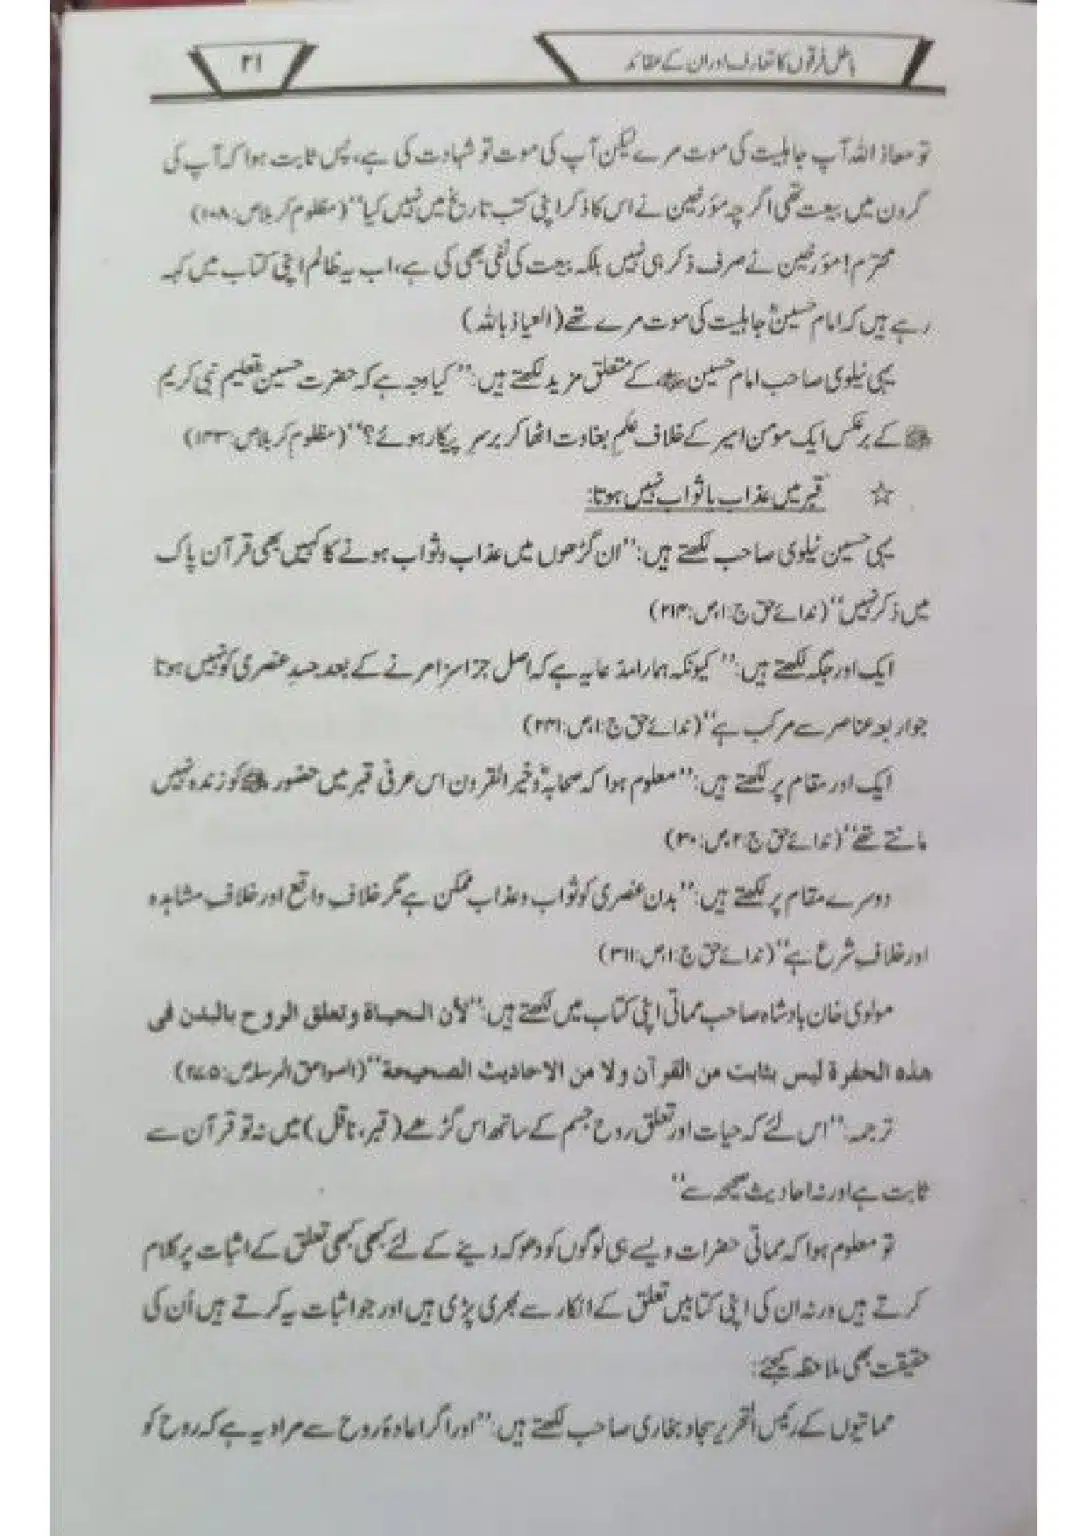 باطل فرقوں کا تعارف اور ان کے عقائد
۲۱
تو معاذ اللہ آپ جاہلیت کی موت مرے لیکن آپ کی موت تو شہادت کی ہے، پس ثابت ہوا کہ آپ کی
گردن میں بیعت تھی اگر چہ مؤرخین نے اس کا ذکر اپنی کتب تاریخ میں نہیں کیا‘‘ (مظلوم کربلا ص:۱۰۸)
محترم! مؤرخین نے صرف ذکر ہی نہیں بلکہ بیعت کی نفی بھی کی ہے، اب یہ ظالم اپنی کتاب میں کہہ
رہے ہیں کہ امام حسینؓ جاہلیت کی موت مرے تھے (العیاذ باللہ)
یہی نیلوی صاحب امام حسین ؓ کے متعلق مزید لکھتے ہیں:’’ کیا وجہ ہے کہ حضرت حسین بتعلیم نبی کریم
ﷺ کے برعکس ایک مومن امیر کے خلاف علمِ بغاوت اٹھا کر برسرِ پیکار ہوئے؟‘‘ (مظلوم کربلا ص:۱۳۳)
☆ قبر میں عذاب یا ثواب نہیں ہوتا:
یہی حسین نیلوی صاحب لکھتے ہیں:’’ان گڑھوں میں عذاب وثواب ہونے کا کہیں بھی قرآن پاک
میں ذکر نہیں‘‘ (ندائے حق ج:۱،ص:۲۱۴)
ایک اور جگہ لکھتے ہیں:’’ کیونکہ ہمارا مدعا یہ ہے کہ اصل جزا سزا مرنے کے بعد جسدِ عنصری کو نہیں ہوتا
جو اربعہ عناصر سے مرکب ہے‘‘ (ندائے حق ج:۱،ص:۲۳۱)
ایک اور مقام پر لکھتے ہیں:’’معلوم ہوا کہ صحابہؓ وخیر القرون اس عرفی قبر میں حضور ﷺ کو زندہ نہیں
مانتے تھے‘‘ (ندائے حق ج:۲،ص:۳۰)
دوسرے مقام پر لکھتے ہیں:’’بدن عنصری کو ثواب وعذاب ممکن ہے مگر خلاف واقع اور خلاف مشاہدہ
اور خلافِ شرع ہے‘‘ (ندائے حق ج:۱،ص:۳۱۱)
مولوی خان بادشاہ صاحب مماتی اپنی کتاب میں لکھتے ہیں:’’لأن الحیاة وتعلق الروح بالبدن فی
هذه الحفرة لیس بثابت من القرآن ولا من الاحادیث الصحیحة‘‘ (الصواعق المرسلہ ص:۲۷۵)
ترجمہ:’’اس لئے کہ حیات اور تعلق روح جسم کے ساتھ اس گڑھے (قبر، ناقل) میں نہ تو قرآن سے
ثابت ہے اور نہ احادیث صحیحہ سے‘‘
تو معلوم ہوا کہ مماتی حضرات ویسے ہی لوگوں کو دھوکہ دینے کے لئے کبھی کبھی تعلق کے اثبات پر کلام
کرتے ہیں ورنہ ان کی اپنی کتابیں تعلق کے انکار سے بھری پڑی ہیں اور جو اثبات یہ کرتے ہیں اُن کی
حقیقت بھی ملاحظہ کیجئے:
مماتیوں کے رئیس التحریر سجاد بخاری صاحب لکھتے ہیں:’’اور اگر اعادۂ روح سے مراد یہ ہے کہ روح کو